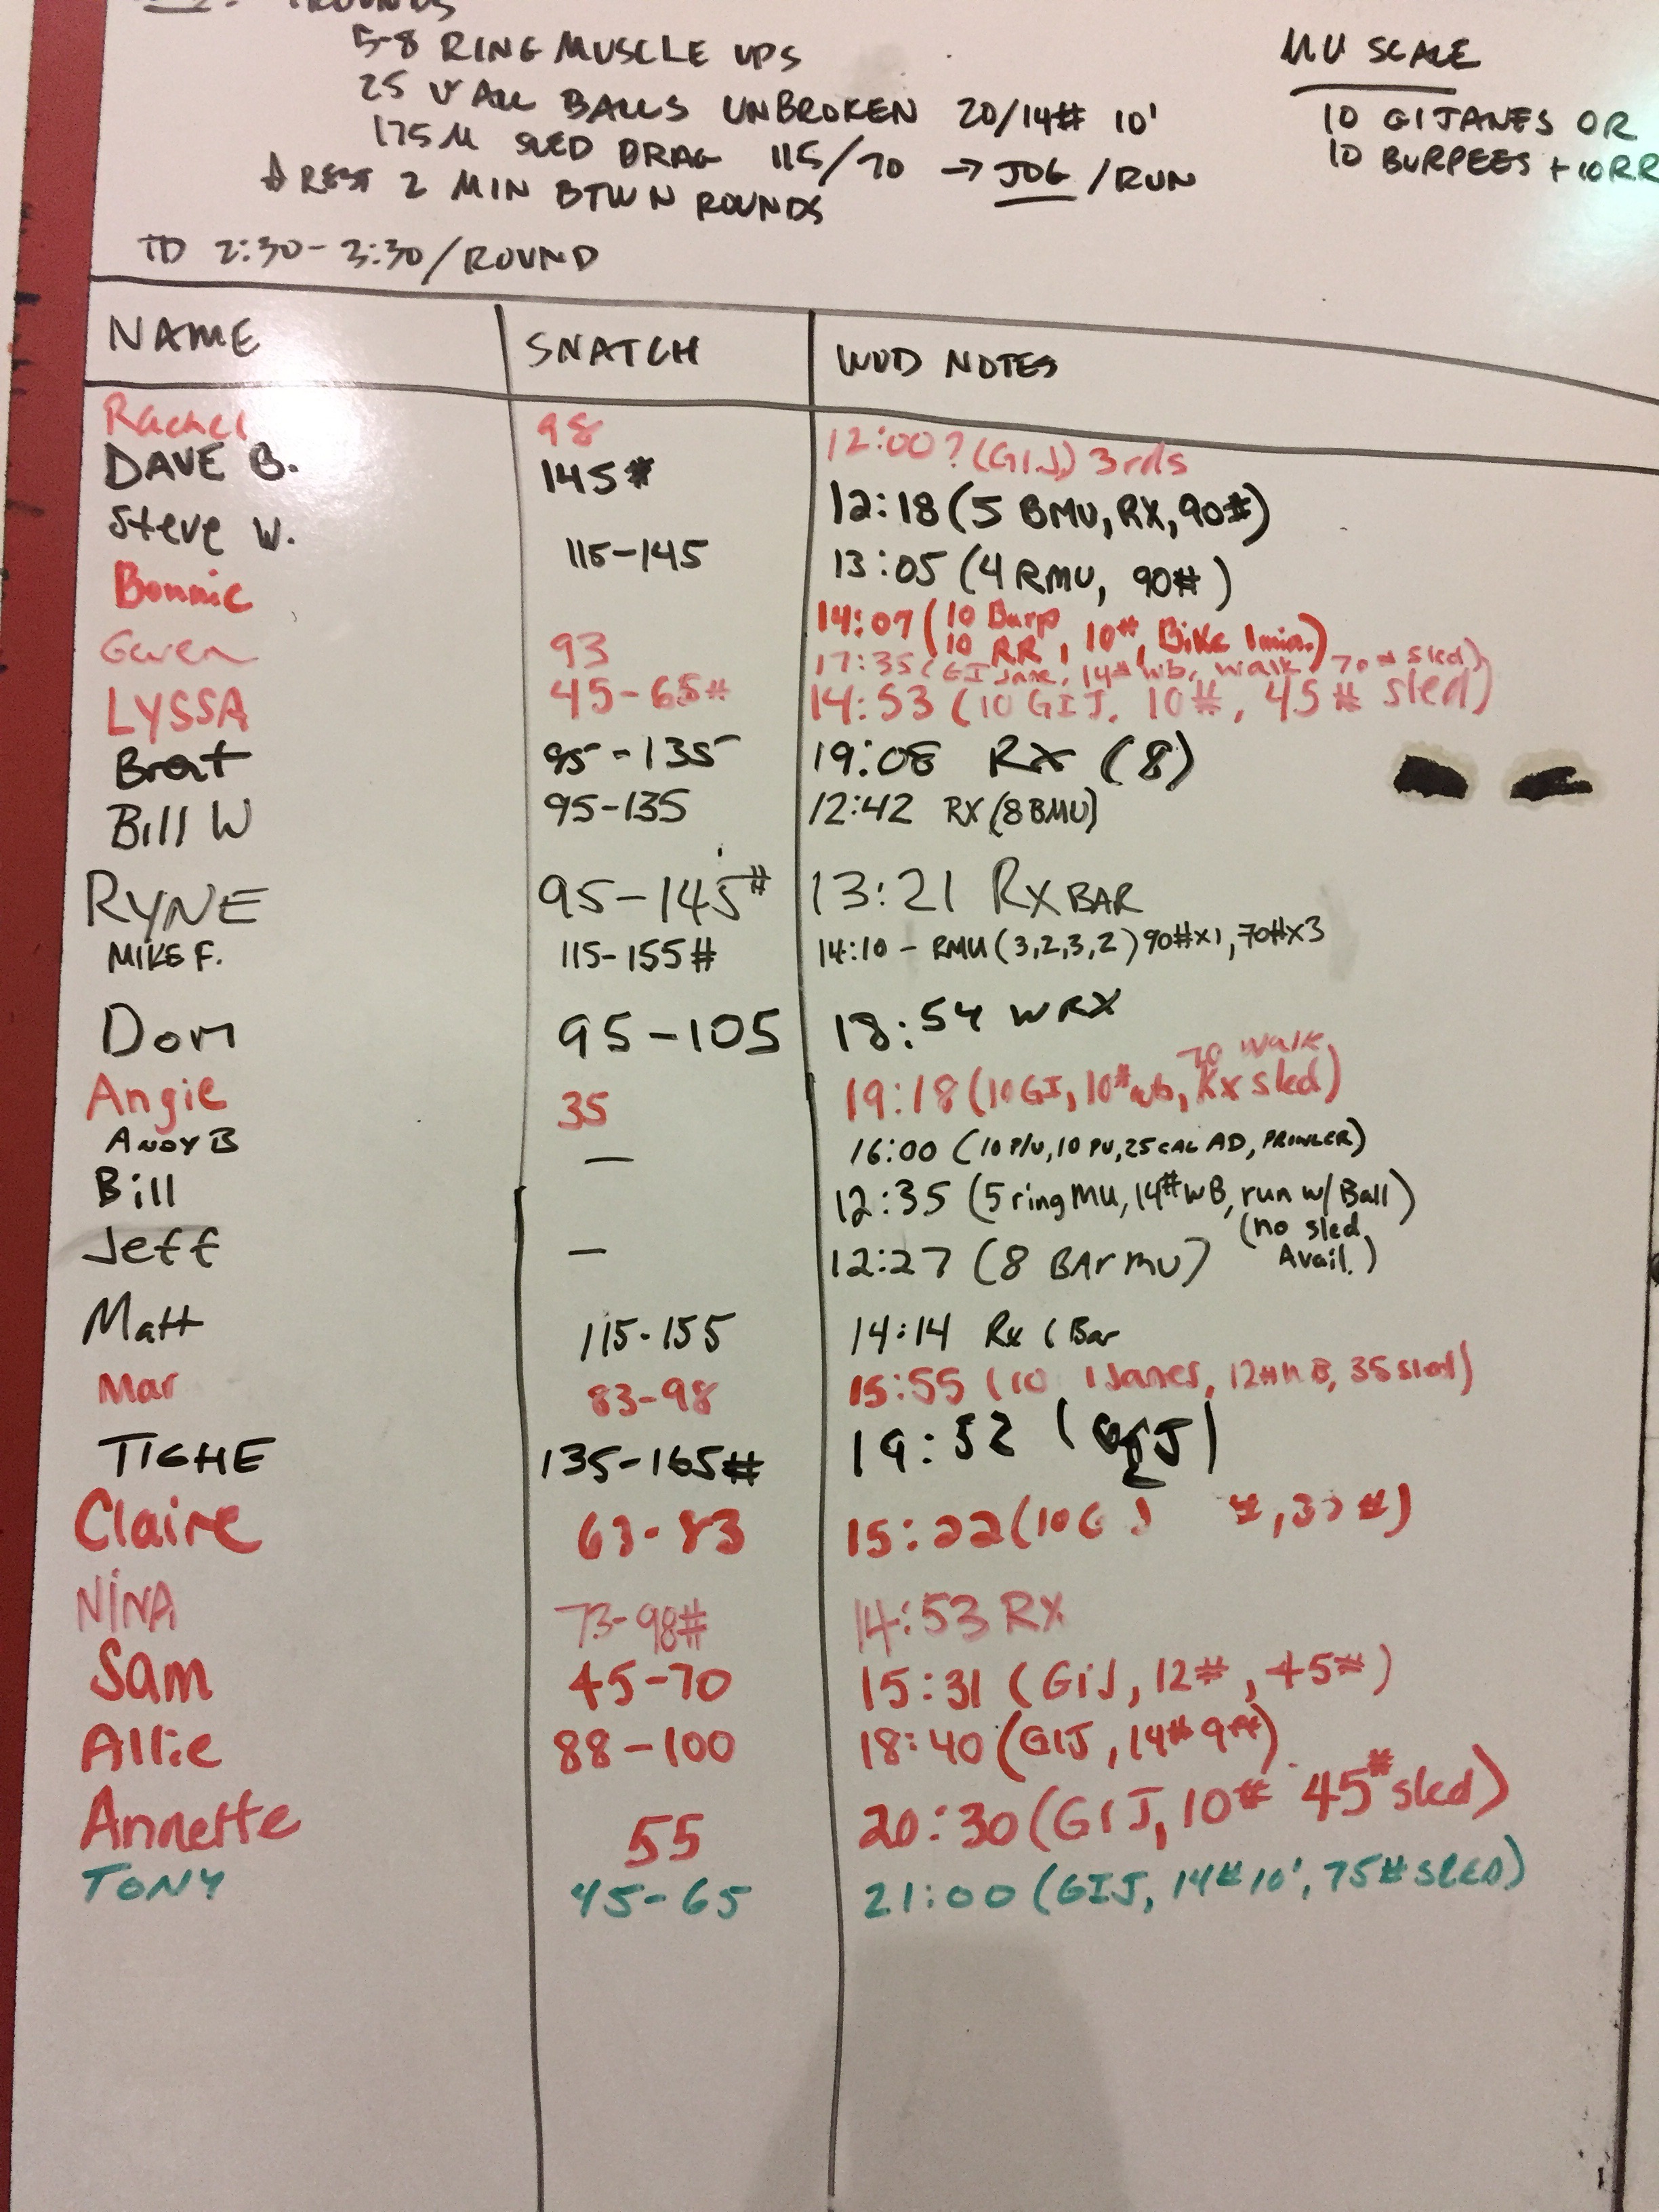 ROUNDS
5-8 RING MUSCLE UPS
25 WALL BALLS UNBROKEN 20/14# 10'
175M SLED DRAG 115/70 → JOG / RUN
REST 2 MIN BTWN ROUNDS
TD 2:30-3:30/ROUND
MU SCALE
10 GI JANES OR
10 BURPEES + 10RR
NAME SNATCH WOD NOTES
Rachel 98 12:00? (GIJ) 3rds
DAVE B. 145# 12:18 (5 BMU, RX, 90#)
Steve W. 115-145 13:05 (4 RMU, 90#)
Bonnie 14:07 (10 Burp
10 RR, 10#, Bike 1 min.)
Gwen 93 17:35 (GI Jane, 14# wb, walk 70# sled)
LYSSA 45-65# 14:53 (10 GIJ. 10#, 45# sled)
Brat 95-135 19:08 RX (8)
Bill W 95-135 12:42 RX (8 BMU)
RYNE 95-145# 13:21 RX BAR
MIKE F. 115-155# 14:10 - RMU (3,2,3,2) 90#x1, 70#x3
Dom 95-105 18:54 WRX
70 walk
Angie 35 19:18 (10 GI, 10# wb, Rx sled)
ANDY B — 16:00 (10 P/U, 10 PU, 25 CAL AD, PROWLER)
Bill 12:35 (5 ring MU, 14# WB, run w/ Ball)
(no sled
Avail.)
Jeff — 12:27 (8 BAr MU)
Matt 115-155 14:14 Rx (Bar
Mar 83-98 15:55 (10 Janes, 12# WB, 35 sled)
TIGHE 135-165# 19:52
Claire 63-83 15:22 (10 G J #, #)
NiNA 73-98# 14:53 RX
Sam 45-70 15:31 (GiJ, 12#, 45#)
Allie 88-100 18:40 (GIJ, 14# 9ft)
Annette 55 20:30 (GIJ, 10# 45# sled)
TONY 45-65 21:00 (GIJ, 14# 10', 75# SLED)